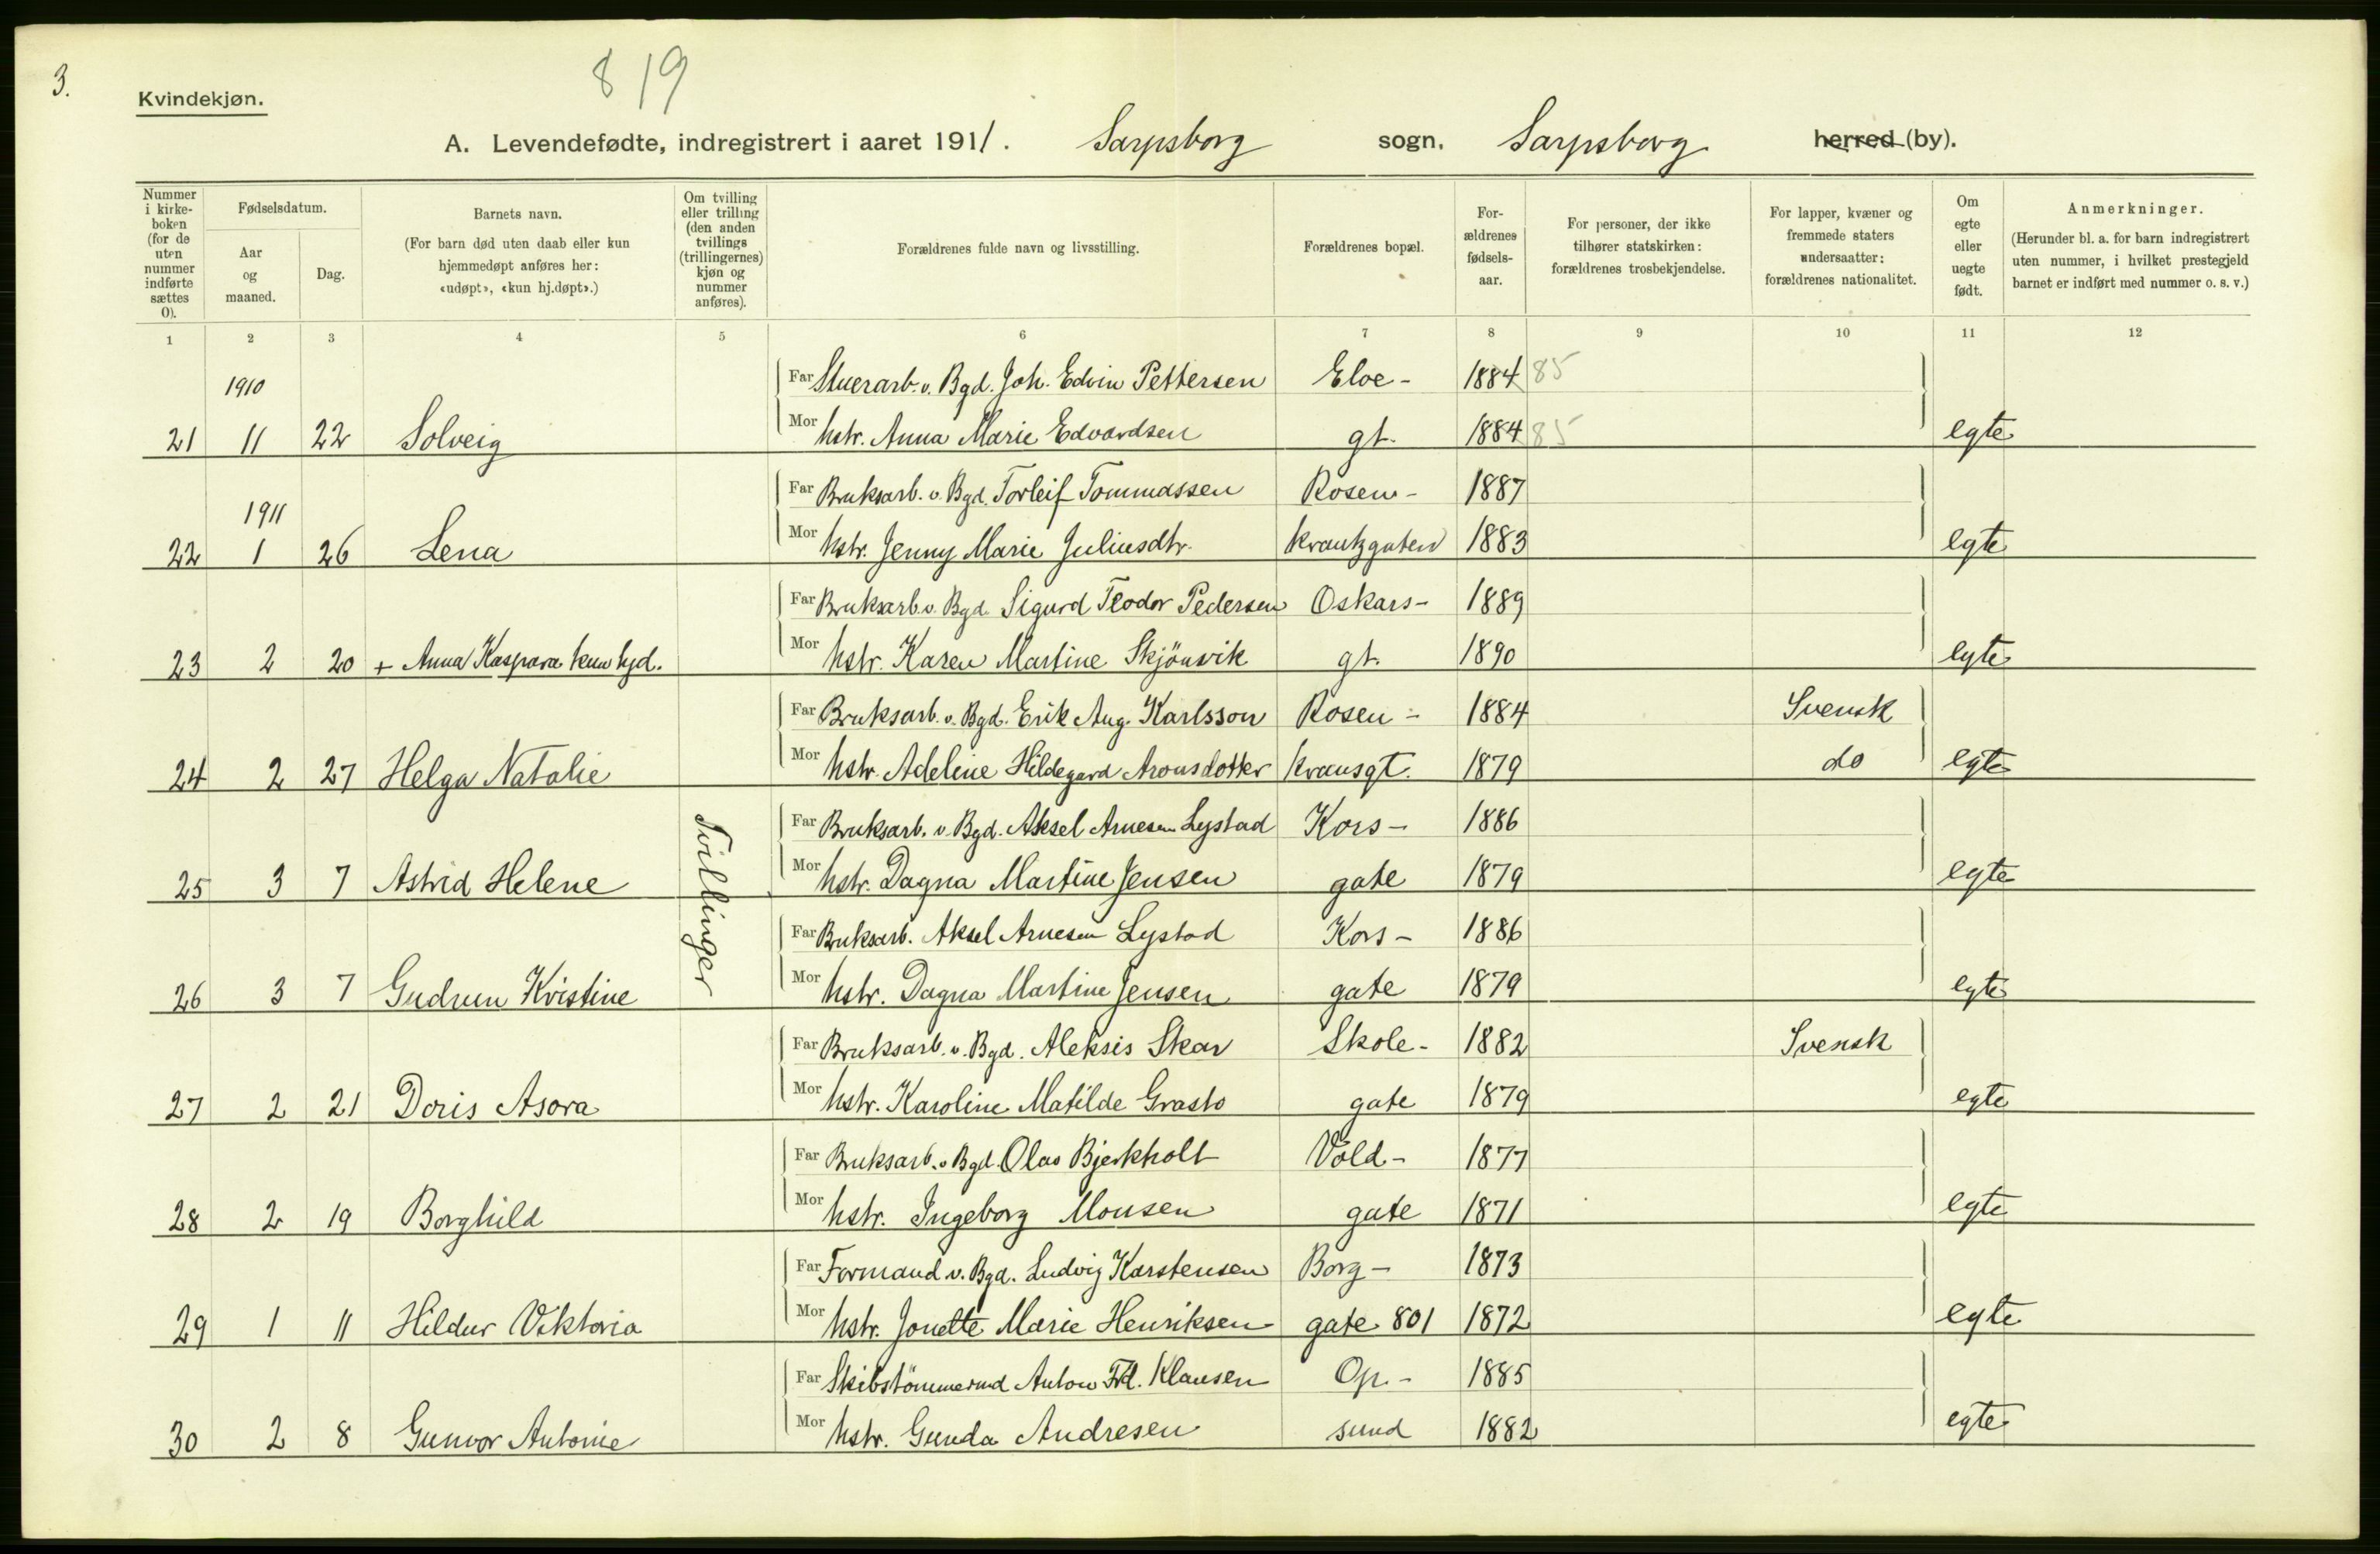 3.
819
Kvindekjøn.
A. Levendefødte, indregistrert i aaret 1911. Sarpsborg sogn. Sarpsborg herred (by).
Nummer i kirke-boken (for de uten nummer indførte sættes 0).
Fødselsdatum.
Aar og maaned.
Dag.
Barnets navn.
(For barn død uten daab eller kun hjemmedøpt anføres her: «udøpt», «kun hj.døpt».)
Om tvilling eller trilling (den anden tvillings (trillingernes) kjøn og nummer anføres).
Forældrenes fulde navn og livsstilling.
Forældrenes bopæl.
For-ældrenes fødsels-aar.
For personer, der ikke tilhører statskirken: forældrenes trosbekjendelse.
For lapper, kvæner og fremmede staters undersaatter: forældrenes nationalitet.
Om egte eller uegte født.
Anmerkninger.
(Herunder bl. a. for barn indregistrert uten nummer, i hvilket prestegjeld barnet er indført med nummer o. s. v.)
1 2 3 4 5 6 7 8 9 10 11 12
1910 Far Stuerarb. v. Bgd. Joh. Edvin Pettersen Elve- 1884 85
21 11 22 Solveig Mor hstr. Anna Marie Edvardsen gt. 1884 85 egte
1911 Far Bruksarb. v. Bgd. Torleif Tommassen Rosen- 1887
22 1 26 Lena Mor hstr. Jenny Marie Juliusdtr. krantzgaten 1883 egte
Far Bruksarb. v. Bgd. Sigurd Teodor Pedersen Oskars- 1889
23 2 20 + Anna Kaspara kun hjd. Mor hstr. Karen Martine Skjönvik gt. 1890 egte
Far Bruksarb. v. Bgd. Erik Aug. Karlsson Rosen- 1884 Svensk
24 2 27 Helga Natalie Mor hstr. Adeline Hildegard Aronsdotter kransgt. 1879 do egte
Far Bruksarb. v. Bgd. Aksel Arnesen Lystad Kors- 1886
25 3 7 Astrid Helene Tvillinger Mor hstr. Dagna Martine Jensen gate 1879 egte
Far Bruksarb. Aksel Arnesen Lystad Kors- 1886
26 3 7 Gudrun Kristine Mor hstr. Dagna Martine Jensen gate 1879 egte
Far Bruksarb. v. Bgd. Aleksis Skar Skole- 1882 Svensk
27 2 21 Doris Asora Mor hstr. Karoline Matilde Grasto gate 1879 egte
Far Bruksarb. v. Bgd. Olav Bjerkholt Vold- 1877
28 2 19 Borghild Mor hstr. Ingeborg Monsen gate 1871 egte
Far Formand v. Bgd. Ludvig Karstensen Borg- 1873
29 1 11 Hildur Viktoria Mor hstr. Jonette Marie Henriksen gate 801 1872 egte
Far Skibstömmermd Anton Frd. Klausen Op- 1885
30 2 8 Gunvor Antonie Mor hstr. Gunda Andresen sund 1882 egte